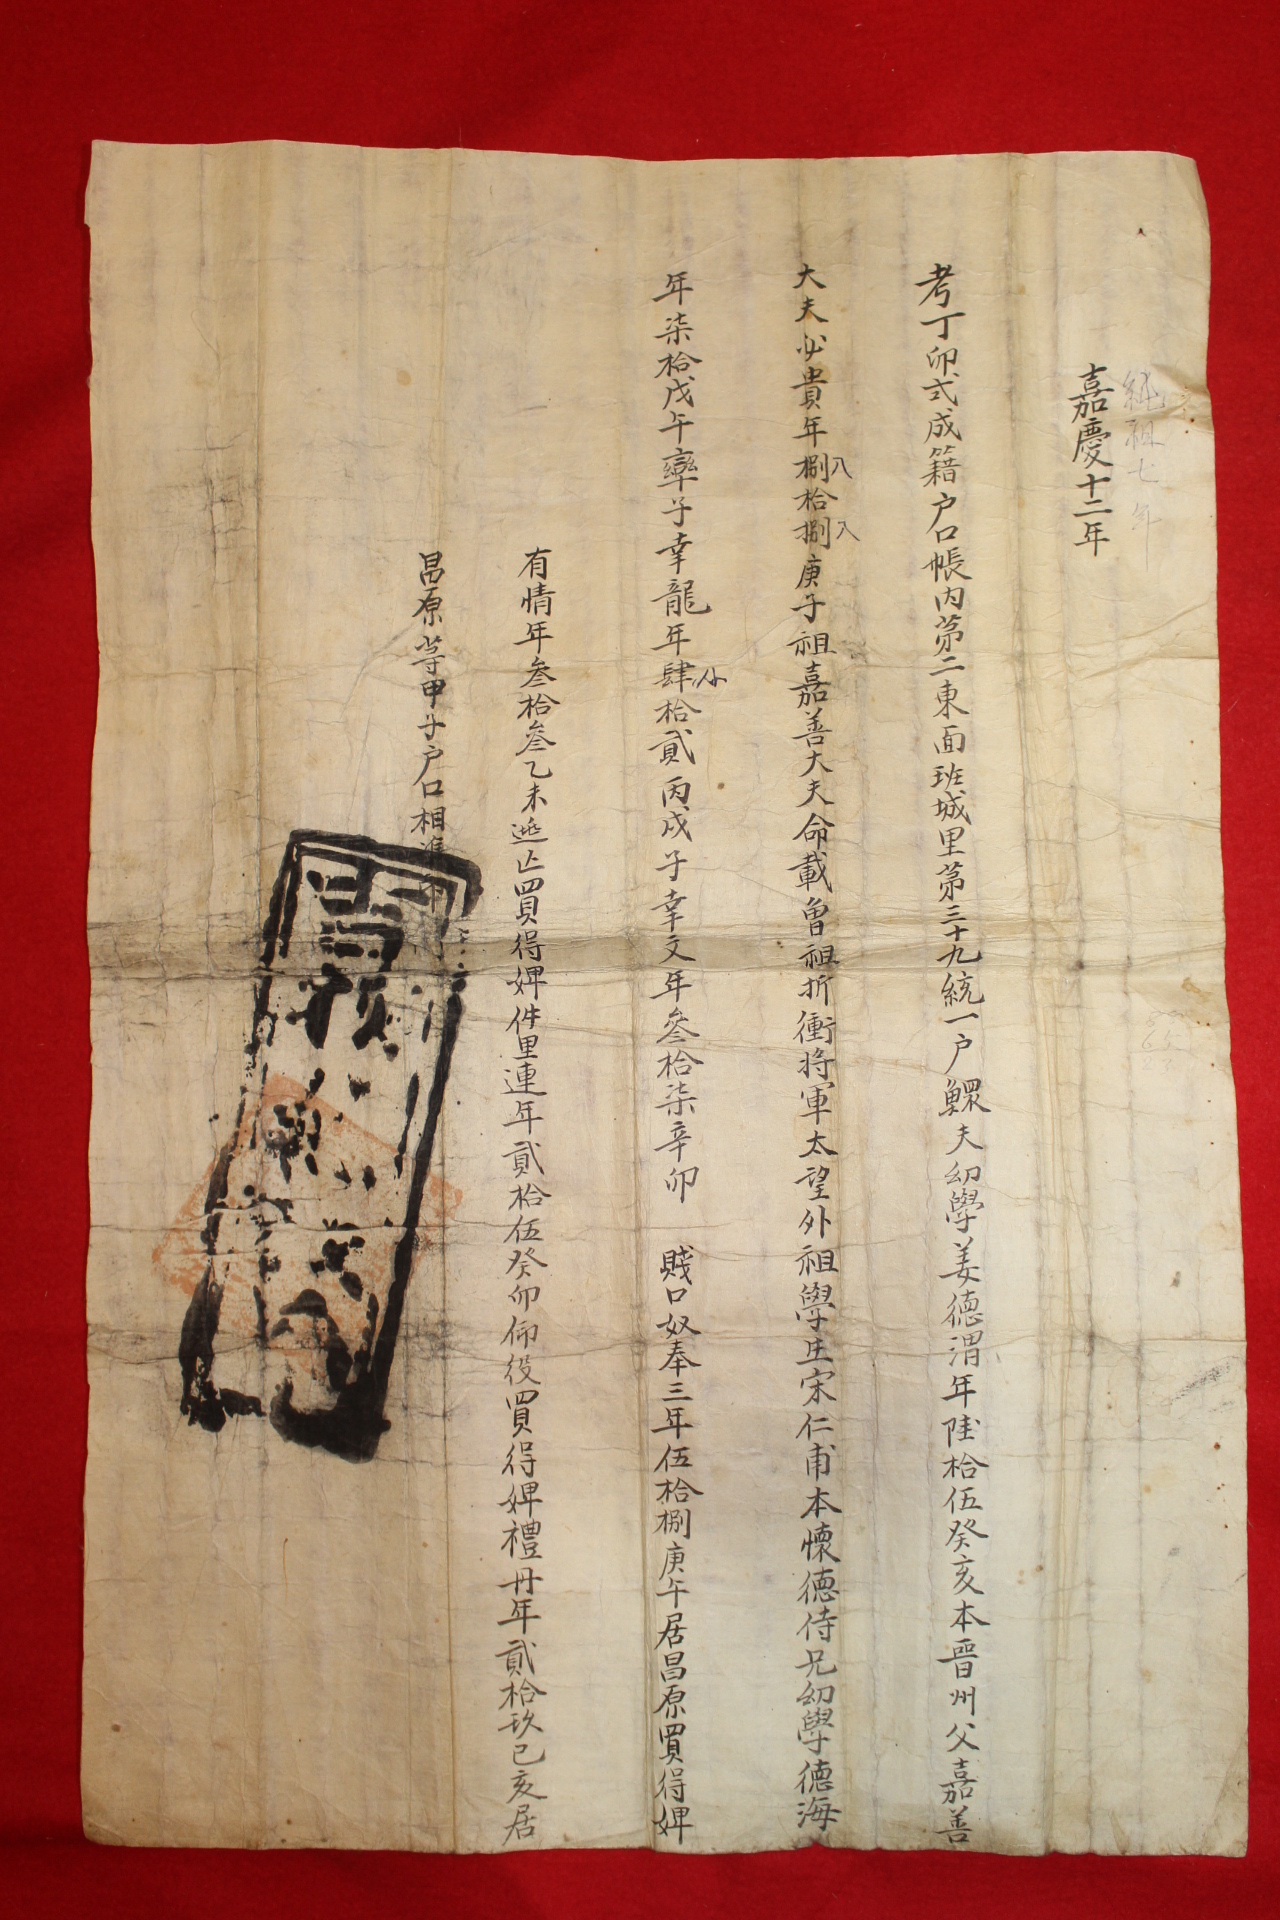 純祖七年
嘉慶十二年
考丁卯式成籍户口帳内苐二東面班城里苐三十九統一户鰥夫幼學姜德渭年陸拾伍癸亥本晋州父嘉善
大夫必貴年捌拾捌庚子祖嘉善大夫命載曾祖折衝將軍太望外祖學生宋仁甫本懷德侍兄幼學德海
八
八
年柒拾戊午率子幸龍年肆拾貳丙戌子幸文年參拾柒辛卯 賤口奴奉三年伍拾捌庚午居昌原買得婢
有情年叁拾叁乙未逃亡買得婢件里連年貳拾伍癸卯仰役買得婢禮丹年貳拾玖己亥居
昌原等甲子户口相準